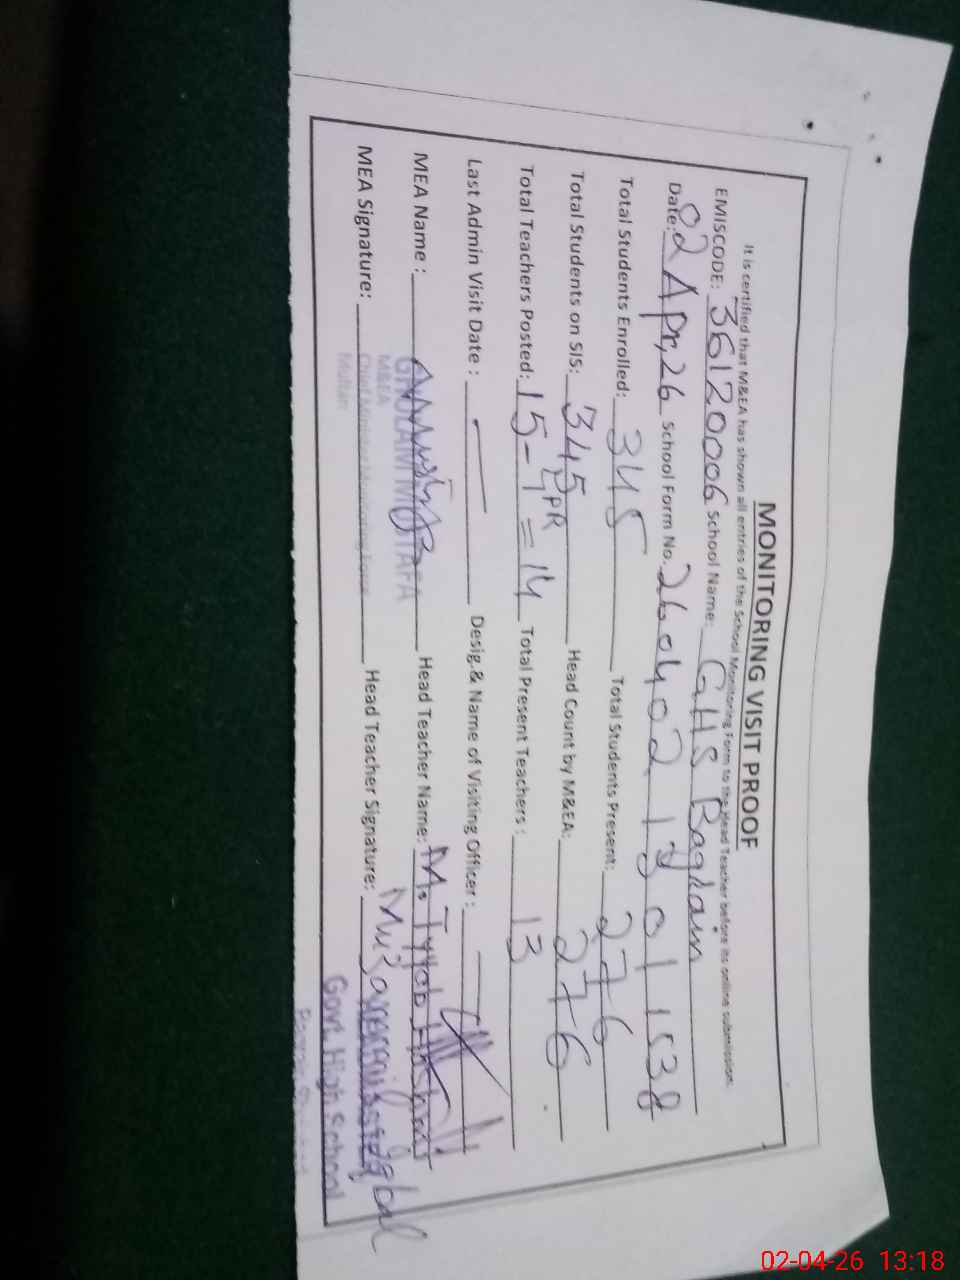 MONITORING VISIT PROOF
It is certified that M&EA has shown all entries of the School Monitoring Form to the Head Teacher before its online submission.
EMISCODE: 36120006 School Name: GHS Bagrain
Date: 02 Apr, 26 School Form No. 260402 13 01 1538
Total Students Enrolled: 345 Total Students Present: 276
Total Students on SIS: 345 Head Count by M&EA: 276
Total Teachers Posted: 15-1 PR = 14 Total Present Teachers: 13
Last Admin Visit Date : — Desig.& Name of Visiting Officer : —
MEA Name : GHULAM MUSTAFA Head Teacher Name: M. Tyyab
M&EA
MEA Signature: Chief Minister Monitoring Force Head Teacher Signature:
Multan
Govt. High School
02-04-26 13:18